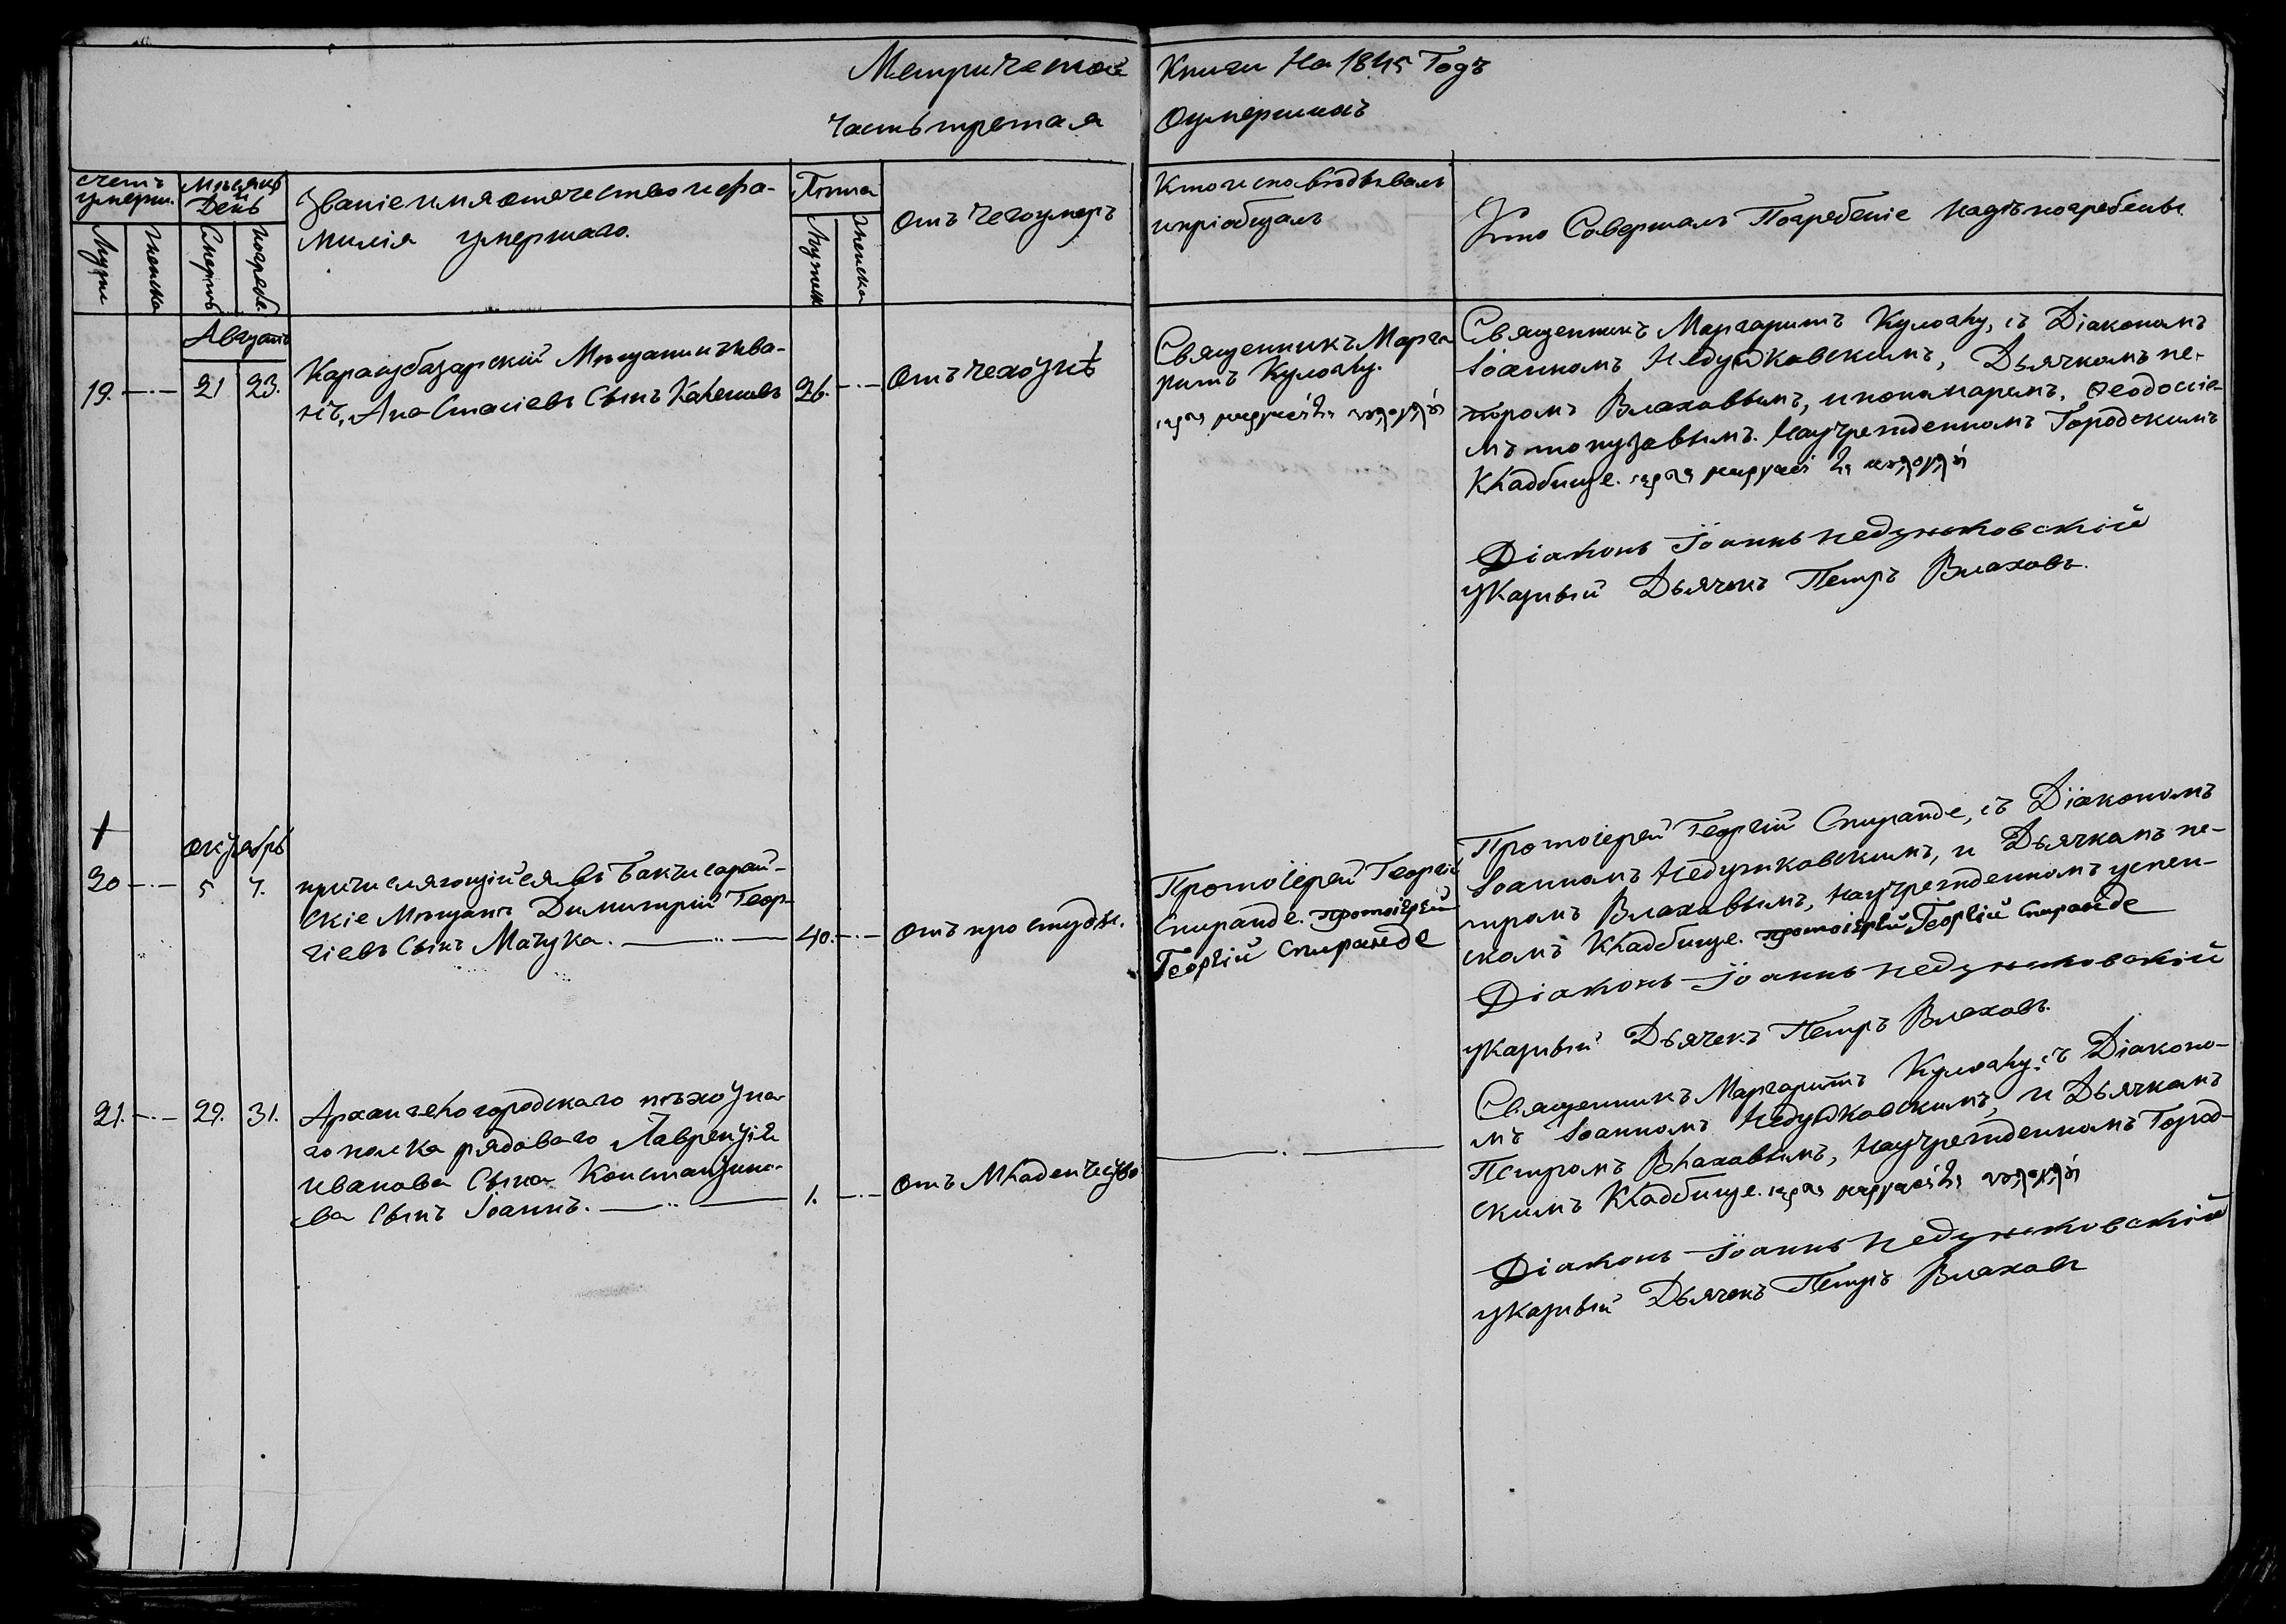 Метрической Книги На 1845 Годъ
часть третая О умершихъ
счетъ умерш.
Мужес
Женска
Мѣсяцъ и День
Смерть
Погребе.
Званіе имя отечество и фа-
милія умершаго.
Лѣта
Мужеск
Женска
отъ чего умеръ
Кто исповѣдывалъ
и пріобщалъ
Кто Совершалъ Погребеніе и гдѣ погребены
Августъ
19. 21 23.
Карасубазарскій Мѣщанинъ Ива-
нъ, Анастасіевъ Сынъ
26.
Отъ чахотки
Священникъ Марга
ритъ
Священникъ Маргаритъ съ Діакономъ
Іоанномъ Недзелковскимъ, Дьячкомъ пе-
тромъ Влаховымъ, и пономаремъ, Ѳеодосіе
мъ топузовымъ. На учрежденномъ Городскимъ
Кладбище.
Діаконъ Іоаннъ
указный Дьячекъ Петръ Влаховъ.
октябрь
20 5 7.
причисляющійся въ Бакчисарай-
скіе Мѣщанъ Димитрій Геор-
гіевъ Сынъ Мачука.
40.
отъ простуды.
Протоіерей Георгій
Спиранде. протоіерей
Георгій Спиранде
Протоіерей Георгій Спиранде, съ Діакономъ
Іоанномъ и Дьячкомъ пе-
тромъ Влаховымъ, на учрежденномъ успен-
скомъ Кладбище. протоіерей Георгій Спиранде
Діаконъ Іоаннъ
указный Дьячекъ Петръ Влаховъ.
21. 29. 31.
Архангелогородскаго пѣхотна
го полка рядоваго Лаврентія
иванова Сына Константино-
ва Сынъ Іоаннъ.
1.
отъ Младенчество
Священникъ Маргаритъ съ Діаконо-
мъ Іоанномъ и Дьячкомъ
Петромъ Влаховымъ, на учрежденномъ Город-
скимъ Кладбище.
Діаконъ Іоаннъ
указный Дьячекъ Петръ Влаховъ